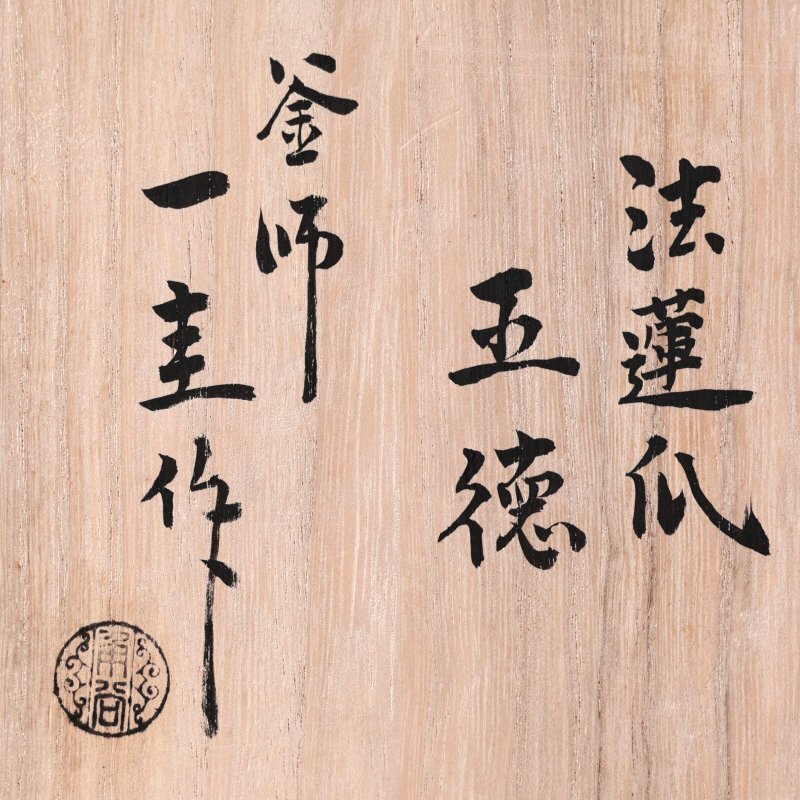 法蓮爪
五德
釜師
一圭作